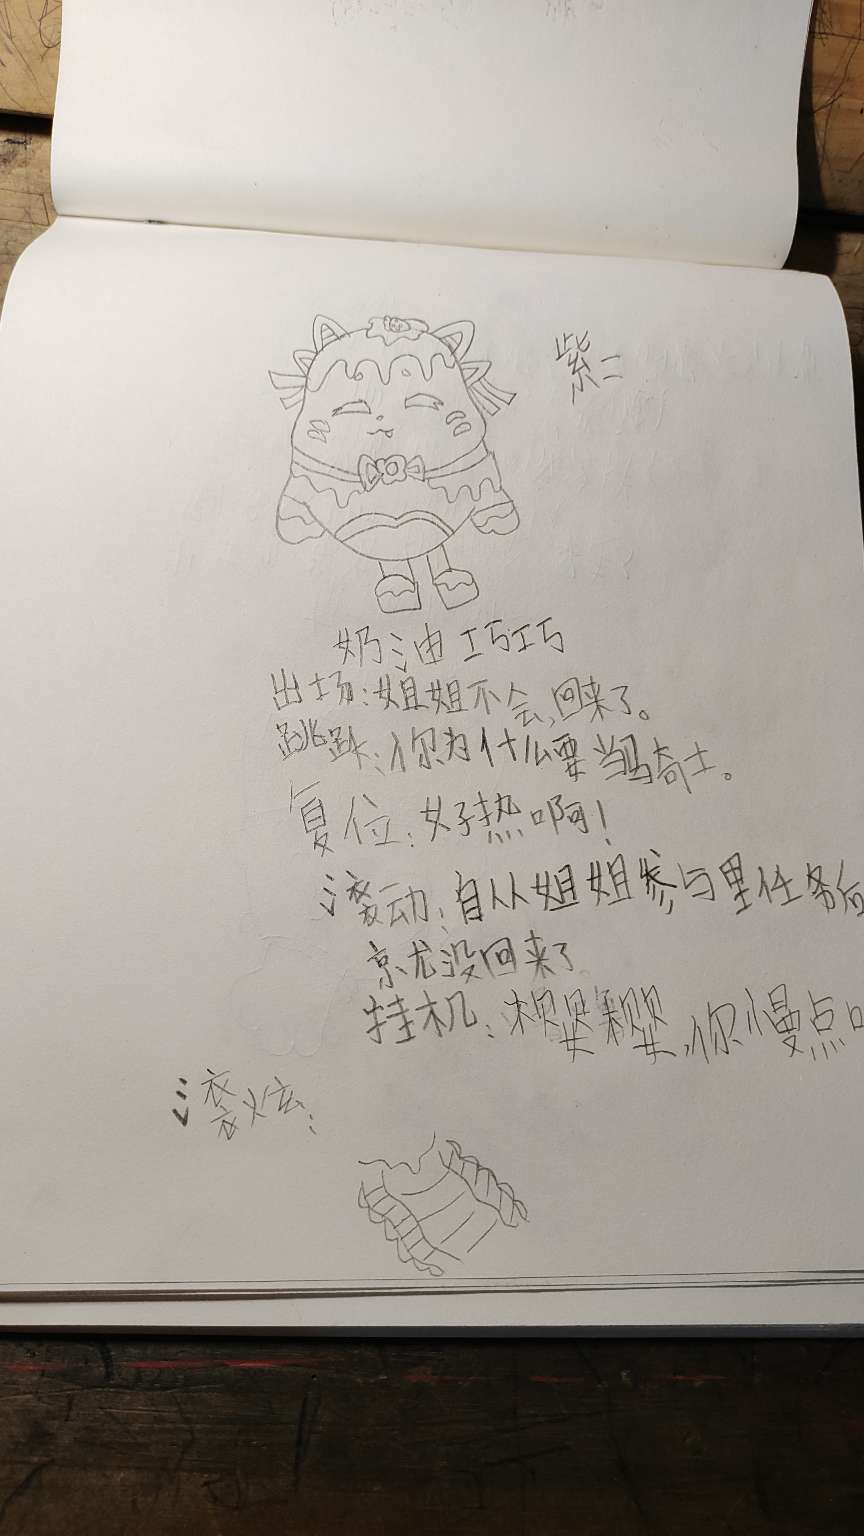 紫二
奶油巧巧
出场:姐姐不会,回来了。
跳跃:你为什么要当骑士。
复位:好热啊!
滚动:自从姐姐参与里任务后
京尤没回来了
挂机:樱樱,你慢点
滚炫: